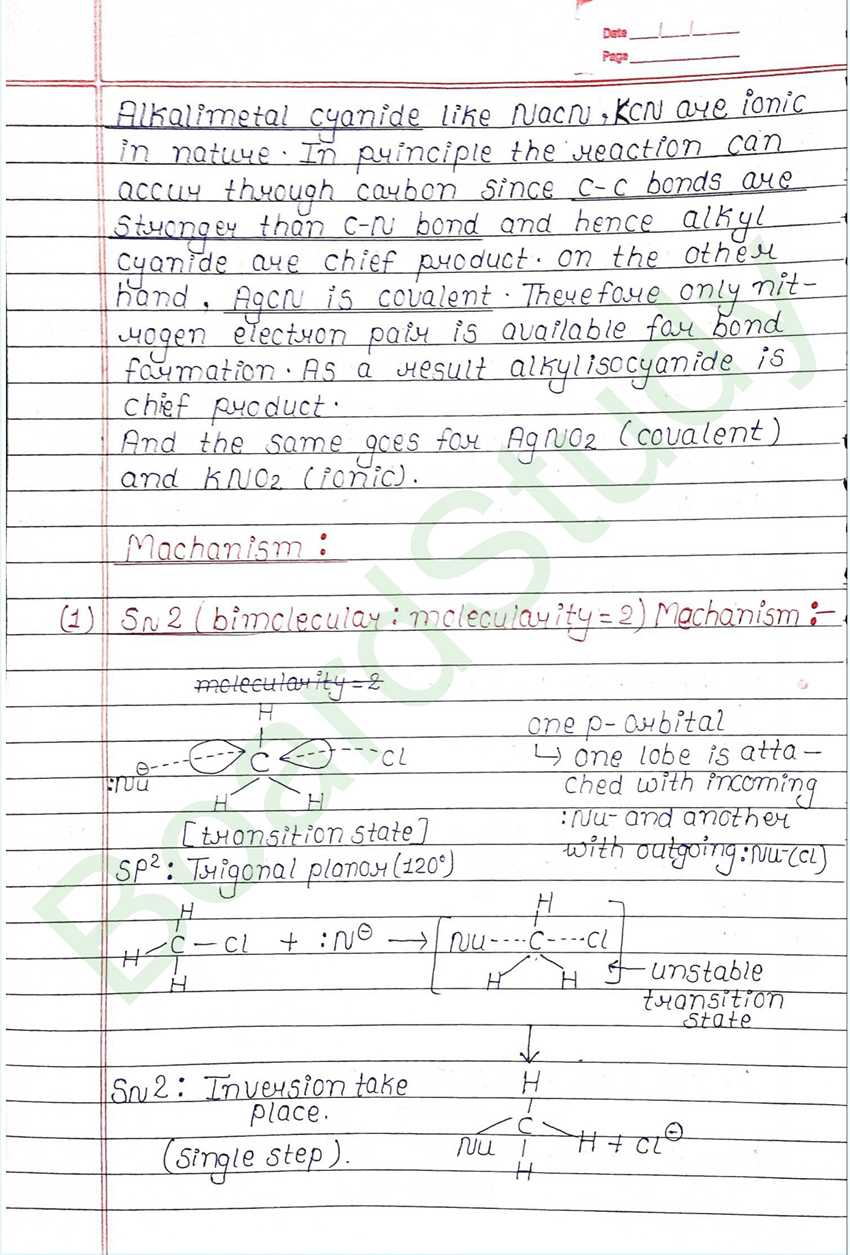 Date
Page
Alkalimetal cyanide like NaCN, KCN are ionic
in nature. In principle the reaction can
accur through carbon since C-C bonds are
stronger than C-N bond and hence alkyl
cyanide are chief product. on the other
hand, AgCN is covalent. Therefore only nit-
rogen electron pair is available for bond
formation. As a result alkylisocyanide is
chief product.
And the same goes for AgNO2 (covalent)
and KNO2 (ionic).
Machanism :
(1) SN2 (bimolecular : molecularity = 2) Mechanism :-
molecularity = 2
H
one p-orbital
:Nu⊖ C Cl
↳ one lobe is atta-
ched with incoming
H H
:Nu- and another
[transition state]
with outgoing :Nu-(Cl)
SP2 : Trigonal planar (120°)
H H
H C - Cl + :N⊖ → [Nu----C----Cl]
H H H
← unstable
transition
state
↓
SN2 : Inversion take
place.
(single step).
H
C
Nu H + Cl⊖
H
BoardStudy